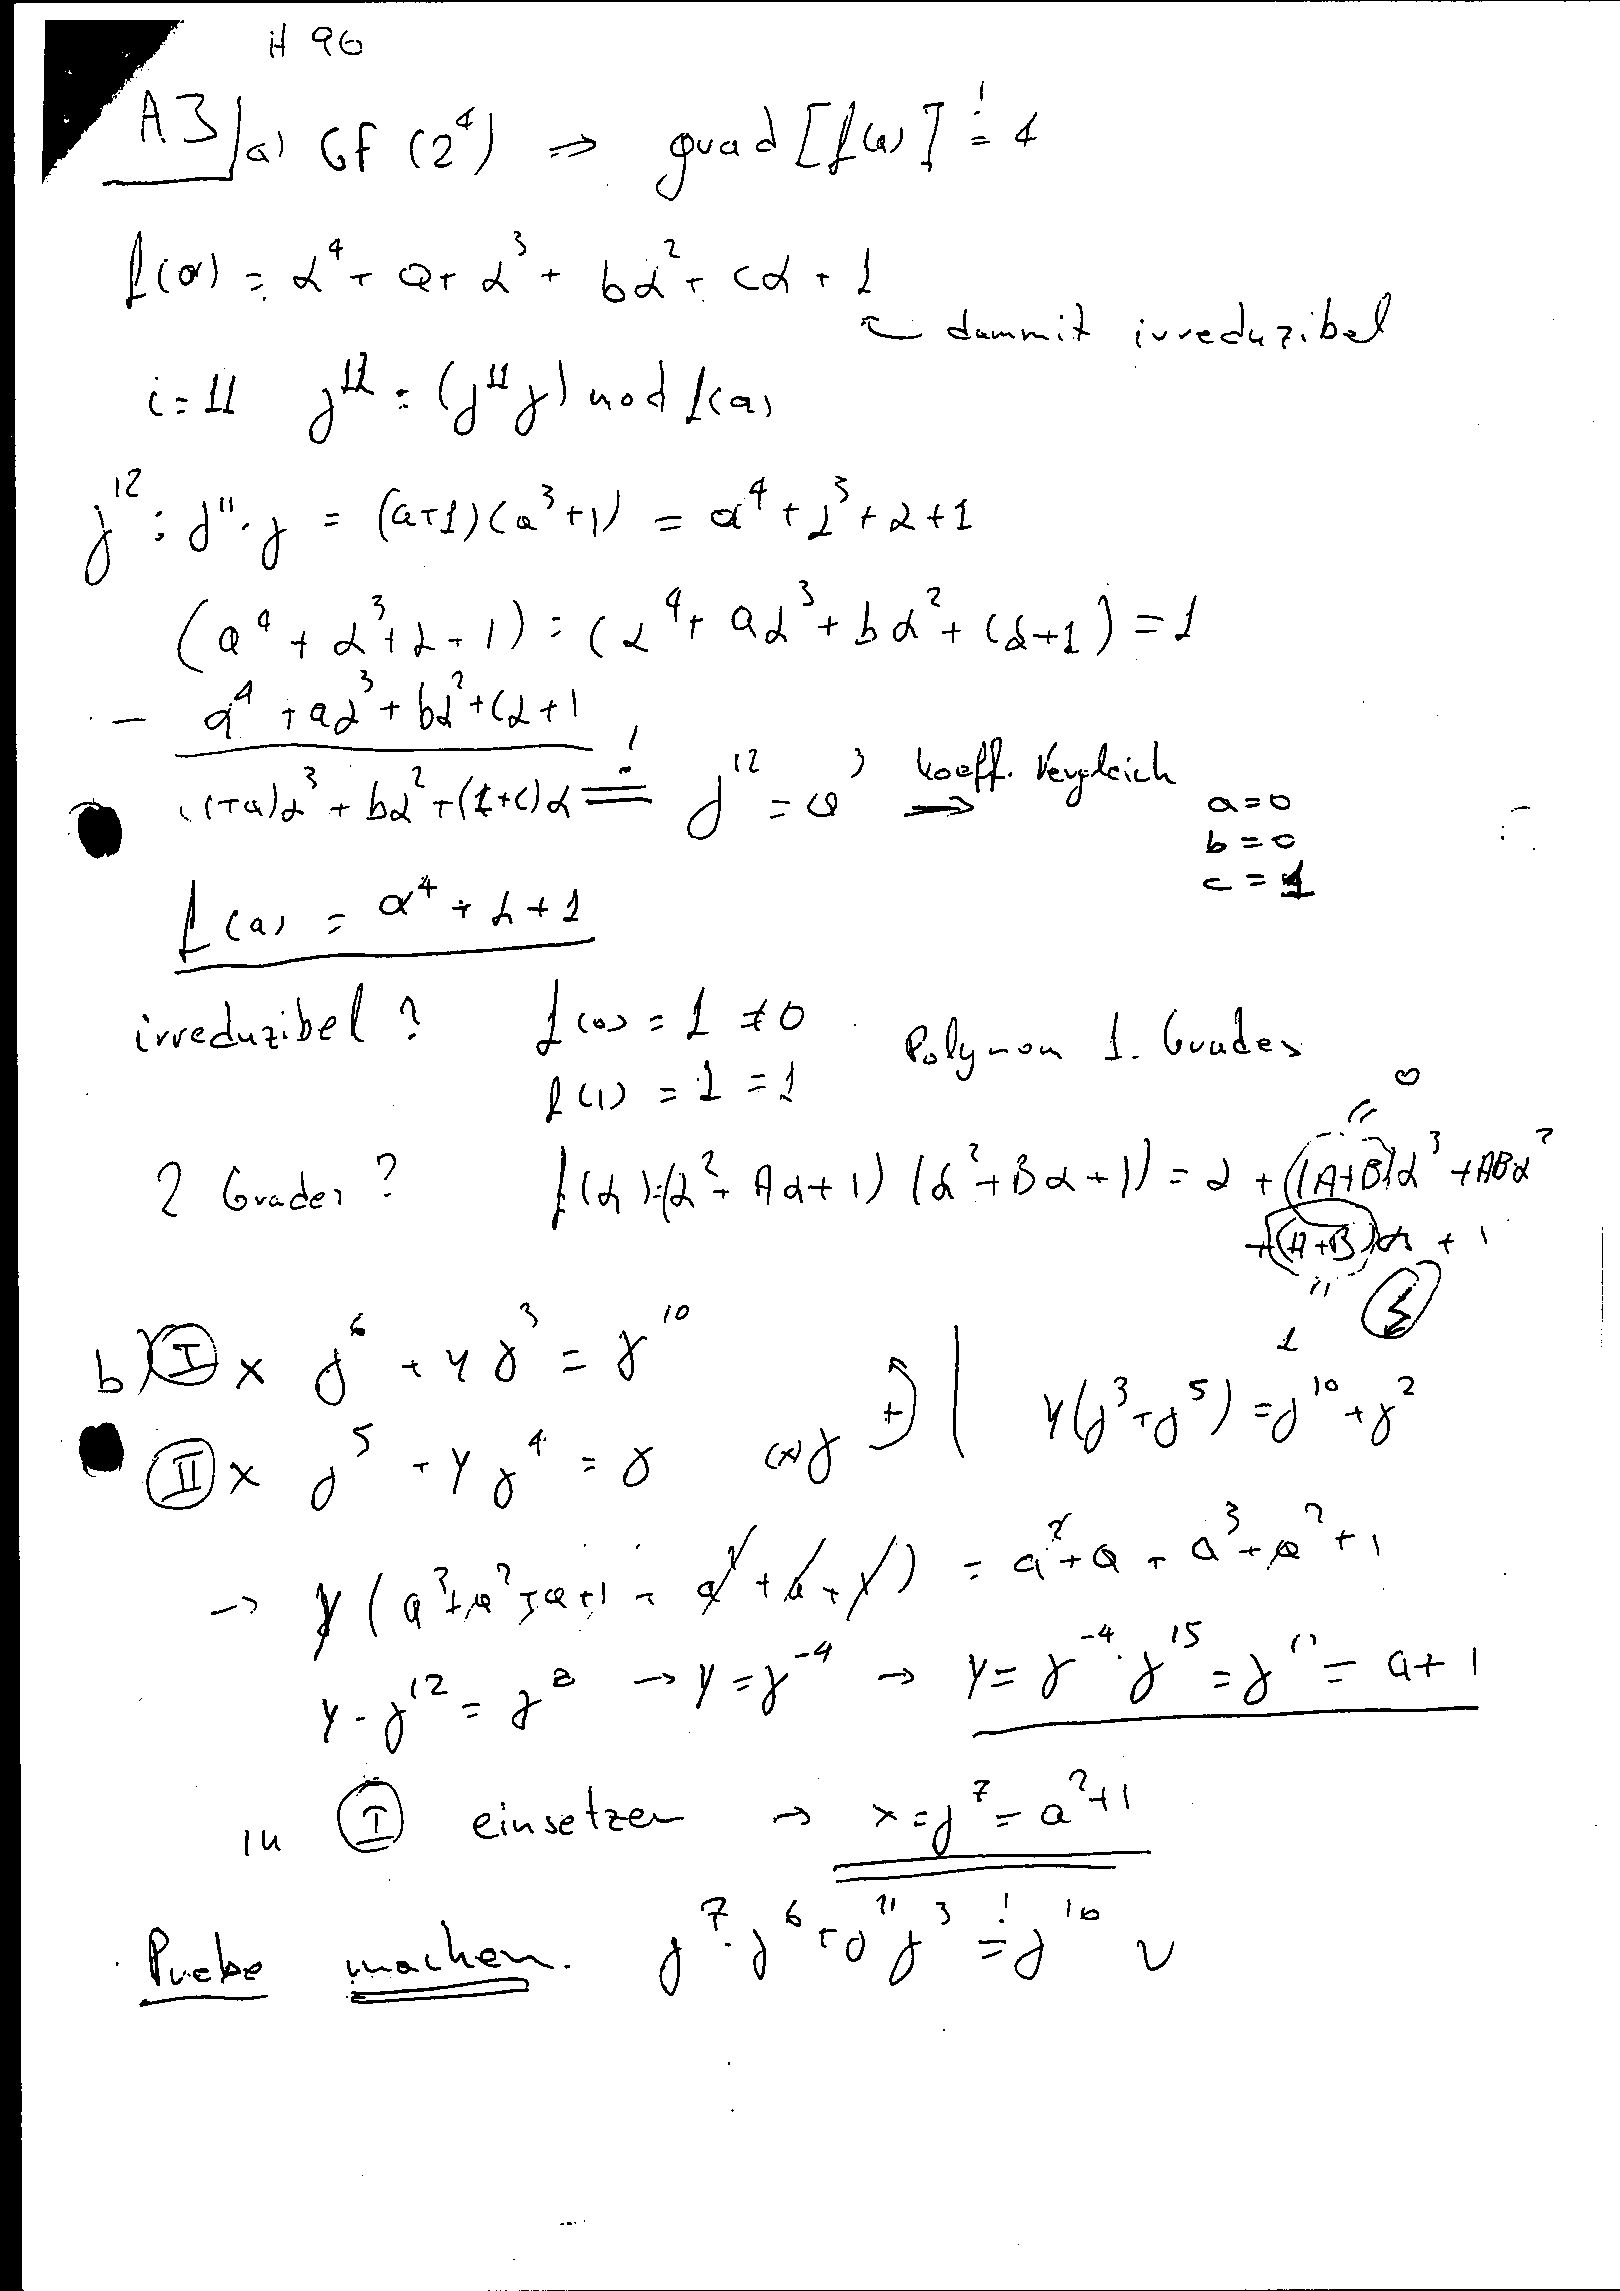 H 96
A3 a) GF (2⁴) ⇒ grad [f(α)] =! 4
f(α) = α⁴ + a+ α³ + bα² + cα + 1
← dammit irreduzibel
i = 11 γ¹² = (γ¹¹ γ) mod f(α)
γ¹² : γ¹¹ · γ = (α+1)(α³+1) = α⁴ + α³ + α + 1
(α⁴ + α³ + α + 1) : (α⁴ + aα³ + bα² + cα + 1) = 1
− α⁴ + aα³ + bα² + cα + 1
(1+a)α³ + bα² + (1+c)α =! γ¹² = α³ ⟶ Koeff. Vergleich
a = 0
b = 0
c = 1
f(α) = α⁴ + α + 1
irreduzibel ? f(0) = 1 ≠ 0 Polynom 1. Grades
f(1) = 1 = 1
2 Grades ? f(α) = (α² + Aα + 1) (α² + Bα + 1) = α + (A+B)α³ + ABα²
" 0
+ (A+B)α + 1
" 1
b) I x γ⁶ + y γ³ = γ¹⁰
II x γ⁵ + y γ⁴ = γ (×) γ + | y(γ³ + γ⁵) = γ¹⁰ + γ²
→ y (α³ + α² + α + 1 + α² + α + 1) = α² + α + α³ + α² + 1
y · γ¹² = γ⁸ → y = γ⁻⁴ → y = γ⁻⁴ · γ¹⁵ = γ¹¹ = α + 1
in I einsetzen → x = γ⁷ = α² + 1
Probe machen. γ⁷ · γ⁶ + γ¹¹ γ³ =! γ¹⁰ ✓